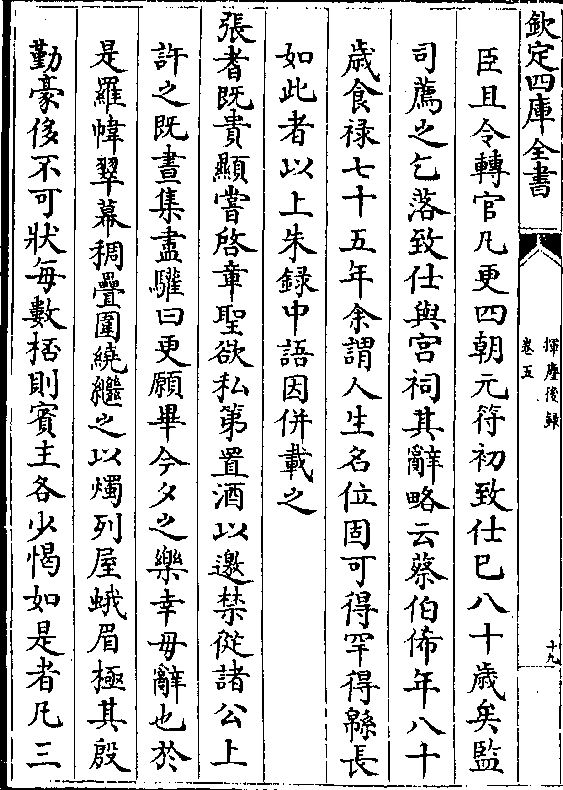 欽定四庫全書
揮麈後錄
卷五
十九
臣且令轉官凡更四朝元符初致仕已八十歲矣監
司薦之乞落致仕與宫祠其辭略云蔡伯俙年八十
歲食祿七十五年余謂人生名位固可得罕得緜長
如此者以上朱録中語因併載之
張耆既貴顯嘗啓章聖欲私第置酒以邀禁從諸公上
許之既晝集盡驩曰更願畢今夕之樂幸毋辭也於
是羅幃翠幕稠疊圍繞繼之以燭列屋蛾眉極其殷
勤豪侈不可狀每數桮則賔主各少愒如是者凡三